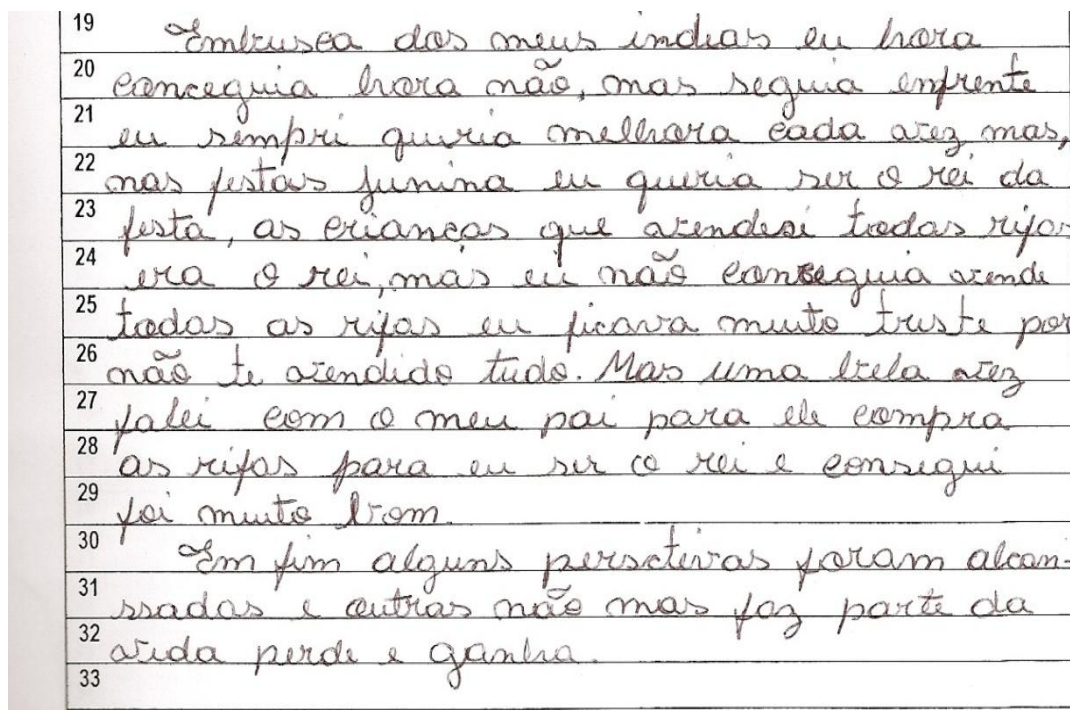 19 Embusca dos meus indias eu hora
20 conceguia hora não, mas seguia enfrente
21 eu sempri quiria melhora cada vez mas,
22 nas festas junina eu queria ser o rei da
23 festa, as crianças que vendesi todas rifas
24 era o rei, mas eu não conseguia vende
25 todas as rifas eu ficava muito triste por
26 não te vendido tudo. Mas uma bela vez
27 falei com o meu pai para ele compra
28 as rifas para eu ser o rei e consegui
29 foi muito bom.
30 Em fim alguns persctivas foram alcan-
31 ssadas e outras não mas faz parte da
32 vida perde e ganha.
33